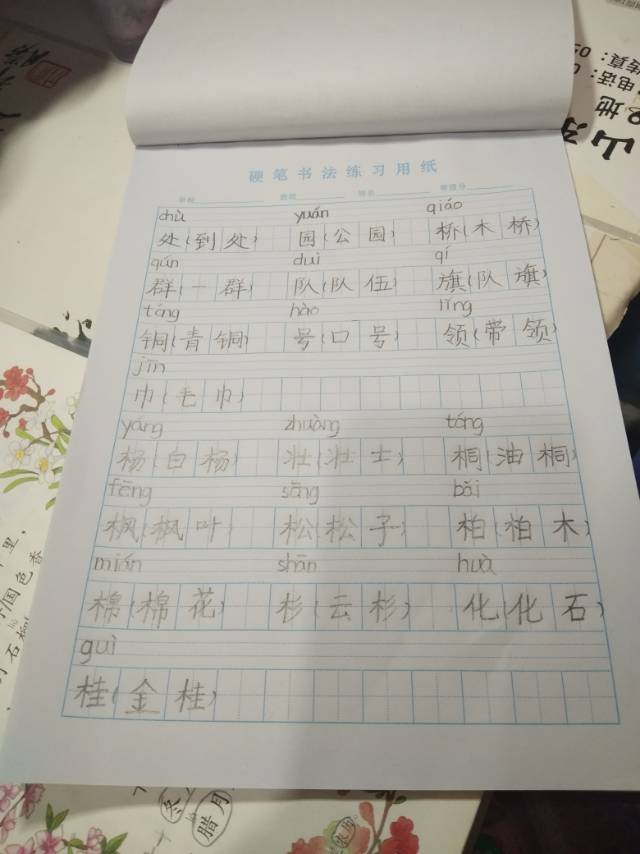 硬笔书法练习用纸
chù yuán qiáo
处(到处) 园(公园) 桥(木桥)
qún duì qí
群(一群) 队(队伍) 旗(队旗)
tóng hào lǐng
铜(青铜) 号(口号) 领(带领)
jīn
巾(毛巾)
yáng zhuàng tóng
杨(白杨) 壮(壮士) 桐(油桐)
fēng sōng bǎi
枫(枫叶) 松(松子) 柏(柏木)
mián shān huà
棉(棉花) 杉(云杉) 化(化石)
guì
桂(金桂)
电话：0
传真：05
山东
地
里，
国色香
石榴
冬
腊月